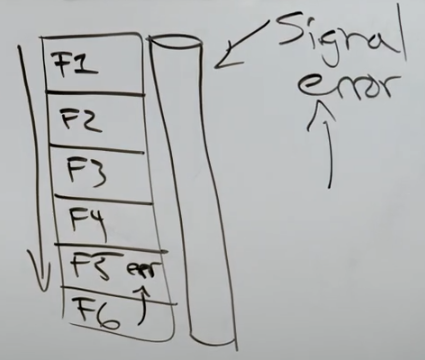 F1
F2
F3
F4
F5 err
F6
Signal
error